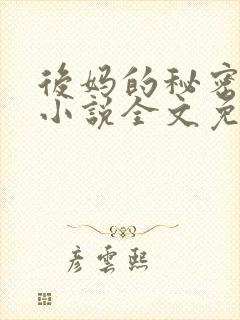 後妈的秘密
小說全文免
彦雲熙